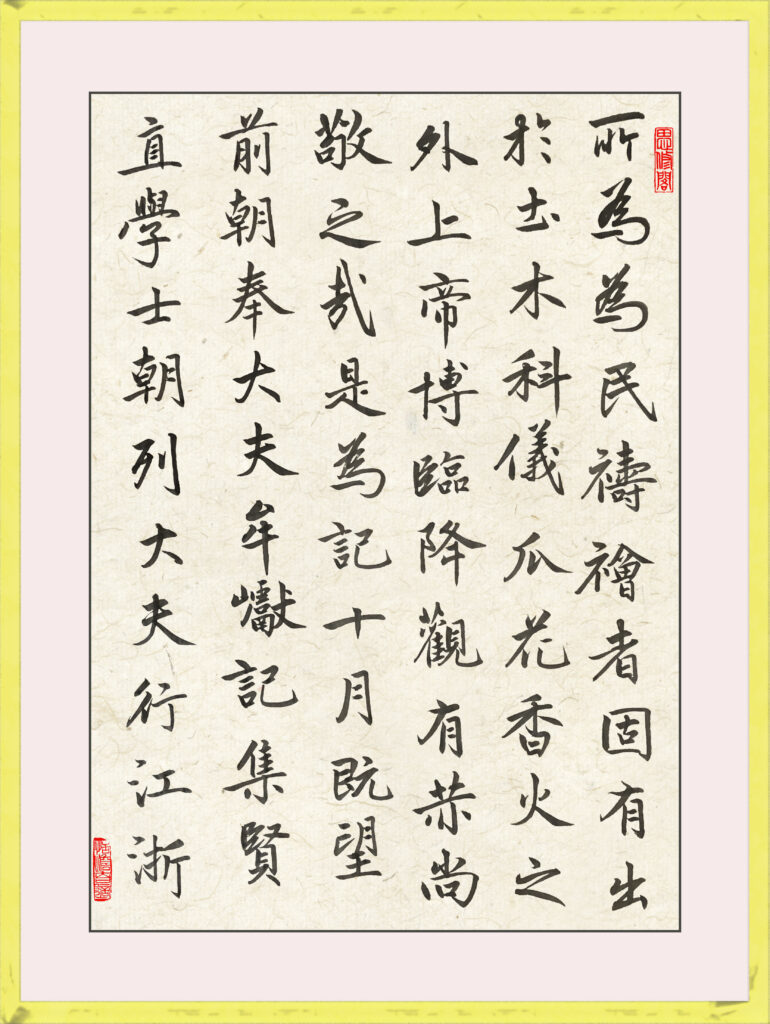 思修閣
所為為民禱禬者固有出
於土木科儀瓜花香火之
外上帝博臨降觀有赫尚
敬之哉是為記十月既望
前朝奉大夫牟巘記集賢
直學士朝列大夫行江浙